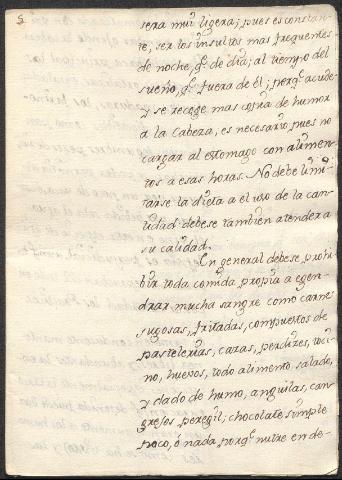 5
sera mui ligera; pues es constan-
te, ser los insultos mas frequentes
de noche, q.e de dia; al tiempo del
sueño, q.e fuera de él; porq.e acude
y se recoge mas copia de humor
a la Cabeza, es necesario pues no
cargar al estomago con alimen-
tos a esas horas. No debe limi-
tarse la dieta a el uso de la can-
tidad debese tambien atender a
su calidad.
En general debese prohi-
bir toda comida propia a egen-
drar mucha sangre como carnes
jugosas, fritadas, compuestos de
pastelerias, cazas, perdizes, toci-
no, huevos, todo alimento salado,
y dado de humo, anguilas, can-
grejos peregil; chocolate, simple
poco, ó nada porq.e nutre en de-